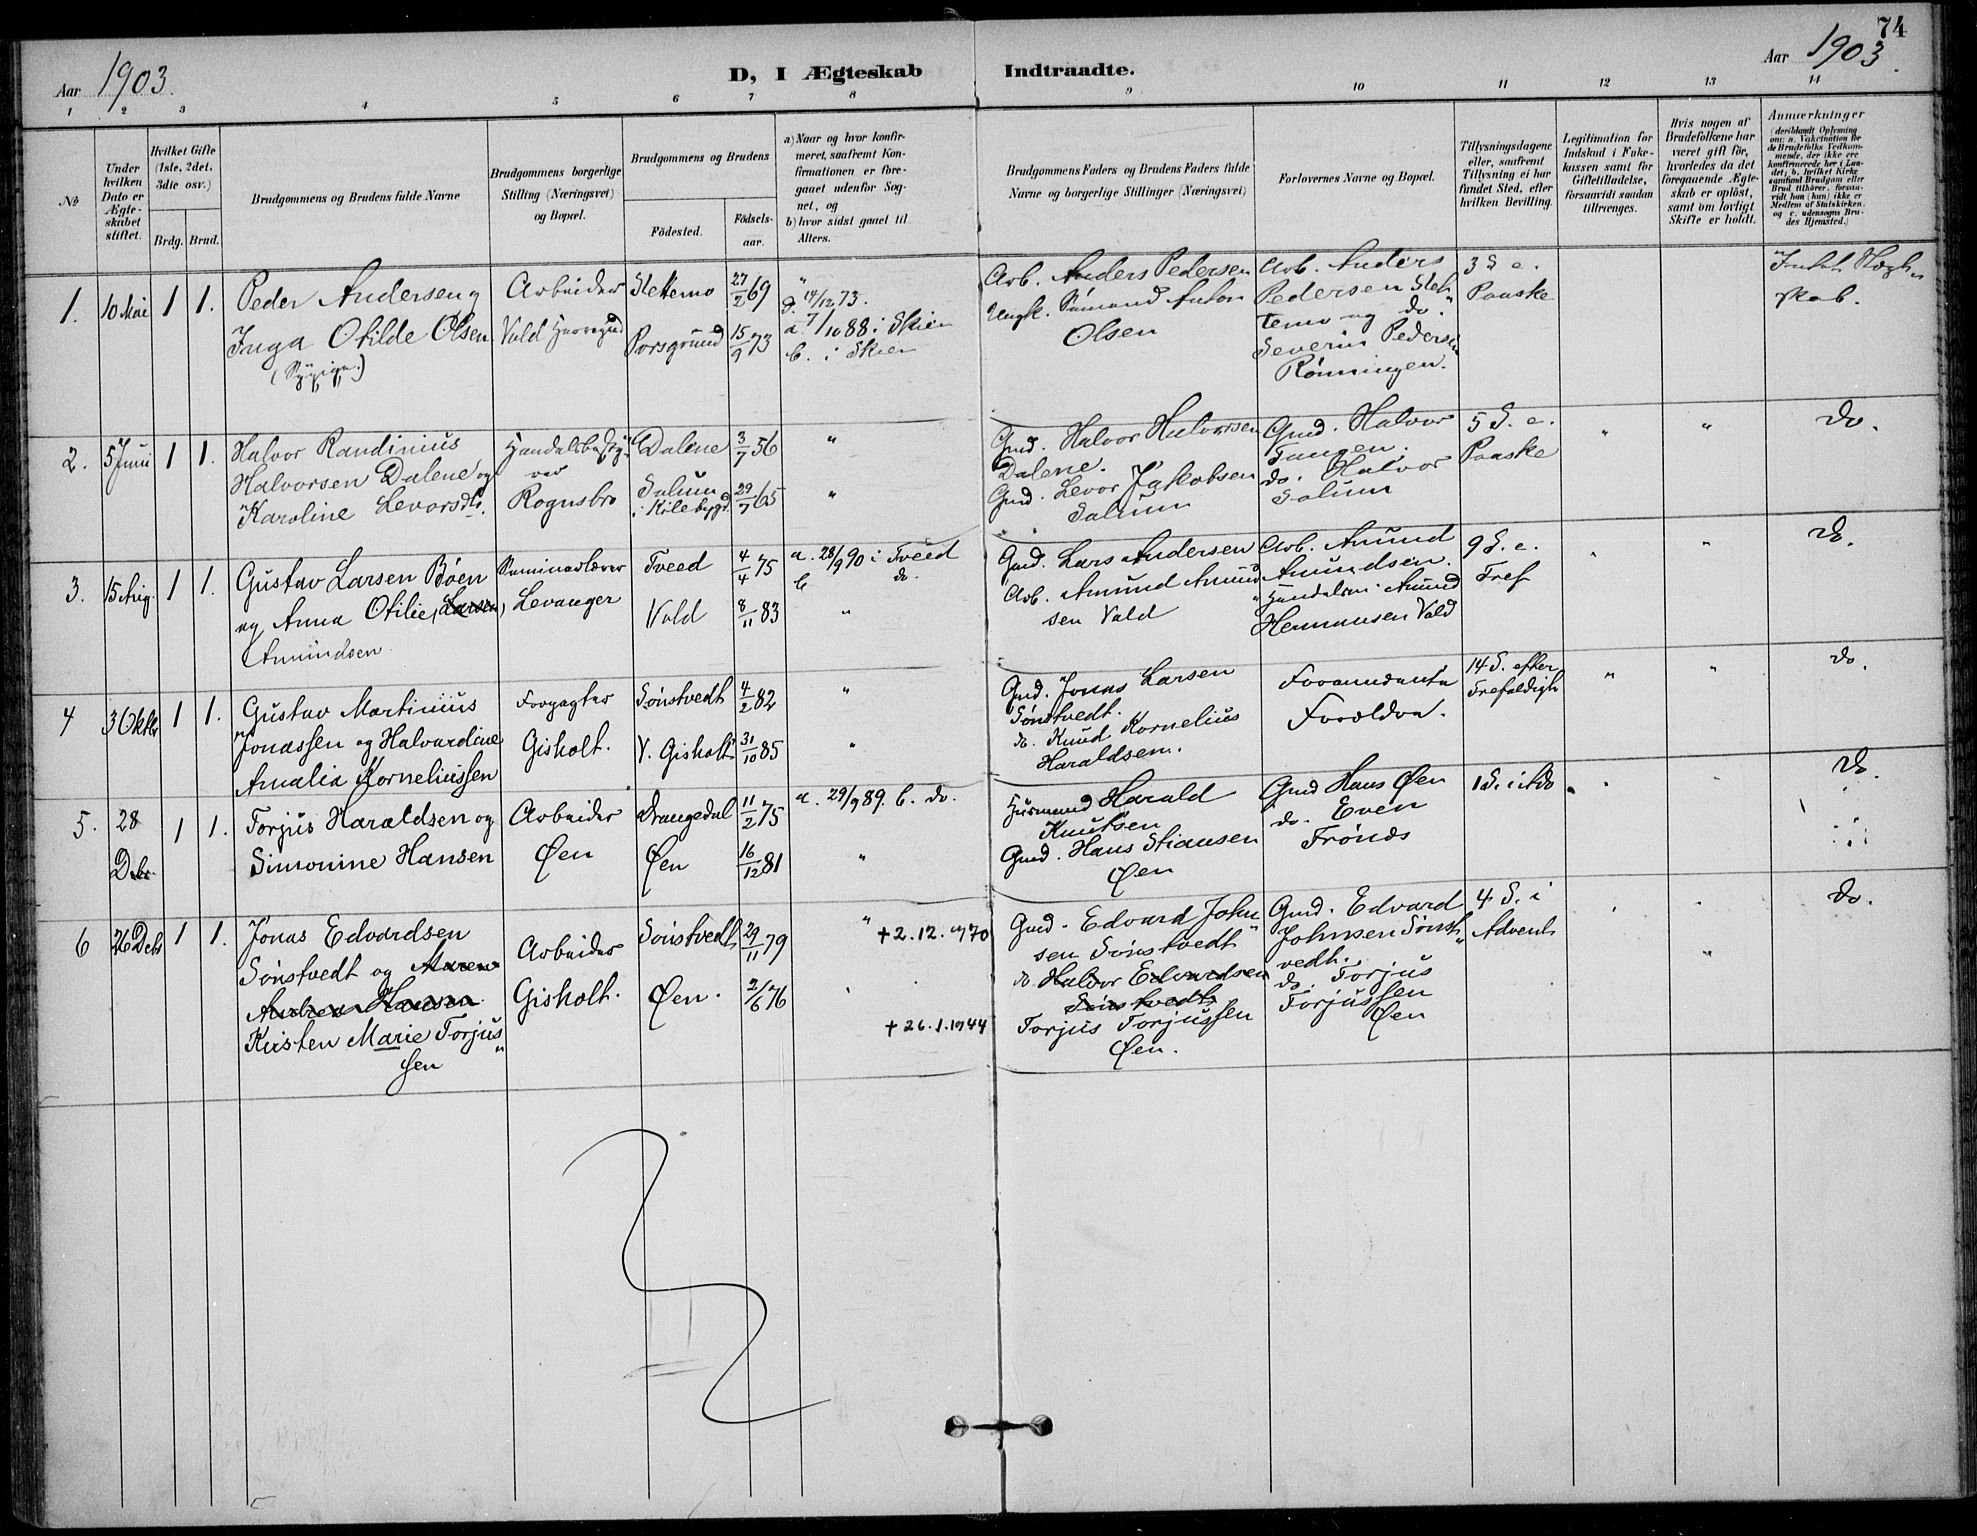 74
Aar 1903.
D, I Ægteskab Indtraadte.
Aar 1903.
1 2 3 4 5 6 7 8 9 10 11 12 13 14
No
Under
hvilken
Dato er
Ægte-
skabet
stiftet.
Hvilket Gifte
(1ste, 2det,
3die osv.)
Brdg. Brud.
Brudgommens og Brudens fulde Navne
Brudgommens borgerlige
Stilling (Næringsvei)
og Bopæl.
Brudgommens og Brudens
Födested.
Födsels-
aar.
a) Naar og hvor konfir-
meret, saafremt Kon-
firmationen er fore-
gaaet udenfor Sog-
net, og
b) hvor sidst gaaet til
Alters.
Brudgommens Faders og Brudens Faders fulde
Navne og borgerlige Stillinger (Næringsvei)
Forlovernes Navne og Bopæl.
Tillysningsdagene
eller, saafremt
Tillysning ei har
fundet Sted, efter
hvilken Bevilling.
Legitimation for
Indskud i Enke-
kassen samt for
Giftetilladelse,
forsaavidt saadan
tiltrænges.
Hvis nogen af
Brudefolkene har
været gift för,
hvorledes da det
foregaaende Ægte-
skab er oplöst,
samt om lovligt
Skifte er holdt.
Anmærkninger
(deriblandt Oplysning
om: a. Vakcination for
de Brudefolks Vedkom-
mende, der ikke ere
konfirmerede her i Lan-
det; b. hvilket Kirke-
samfund Brudgom eller
Brud tilhörer, forsaa-
vidt han (hun) ikke er
Medlem af Statskirken,
og c. udensogns Bru-
des Hjemsted.)
1. 10 Mai 1 1.
Peder Andersen og
Inga Otilde Olsen
Arbeider
Vald
Slettemo
Porsgrund
27/2 69
15/9 73
"
a. 7/10 88 i Skien
b. i Skien
Arb. Anders Pedersen
Ungk. Amund Anton
Olsen
Arb. Anders
Pedersen Slet"
temo og do.
Severin Pedersen
Rönningen.
3 S e.
Paaske
Intet Slægt"
skab.
2. 5 Juni 1 1.
Halvor Randinius
Halvorsen Dalene og
Karoline Levorsdt.
Handelsbestyr"
rer
Rognsbro
Dalene
Salum
i Kilebygd.
3/7 56
29/7 65
"
"
Gmd. Halvor Halvorsen
Dalene.
Gmd. Levor Jakobsen
Salum
Gmd. Halvor
Tangen.
do. Halvor
Solum
5 S. e.
Paaske
"
"
do.
3. 15 Aug. 1 1.
Gustav Larsen Böen
og Anna Otilie (Larsen)
Amundsen
Seminarlærer
Levanger
Tveed
Vald
4/4 75
8/11 83
a. 28/9 90 i Tveed
b do.
"
Gmd. Lars Andersen
Arb. Amund Amund"
sen Vald
Arb. Amund
Amundsen.
Handelsm. Amund
Hermansen Vald
9 S. e.
Tref
"
"
do.
4 3 Oktbr 1 1.
Gustav Martinius
Jonassen og Halvardine
Amalia Korneliussen
Forpagter
Gisholt.
Sönstvedt
V. Gisholt
4/2 82
31/10 85
"
"
Gmd. Jonas Larsen
Sönstvedt.
do. Knud Kornelius
Haraldsen.
Forannævnte
Forældre.
14 S. efter
Trefoldigh
"
"
do.
5. 28 Dcbr 1 1.
Torjus Haraldsen og
Simonine Hansen
Arbeider
Öen
Drangedal
Öen
11/2 75
16/12 81
a. 29/9 89. b. do.
"
Husmand Harald
Knutsen
Gmd. Hans Stiansen
Öen
Gmd Hans Öen
do. Even
Trönds
1 S. i Adv
do.
6 26 Dcbr 1 1.
Jonas Edvardsen
Sönstvedt og Maren
Andrea Hansen
Kirsten Marie Torjus"
sen
Arbeider
Gisholt.
Sönstvedt
Öen.
29/11 79
2/6 76
"
+ 2.12.1970
+ 26.1.1944
Gmd. Edvard John"
sen Sönstvedt
do. Halvor Edvardsen
Sönstvedt
Torjus Torjussen
Öen.
Gmd. Edvard
Johnsen Sönst"
vedt.
do. Torjus
Torjussen
Öen
4 S. i
Advent
"
do.